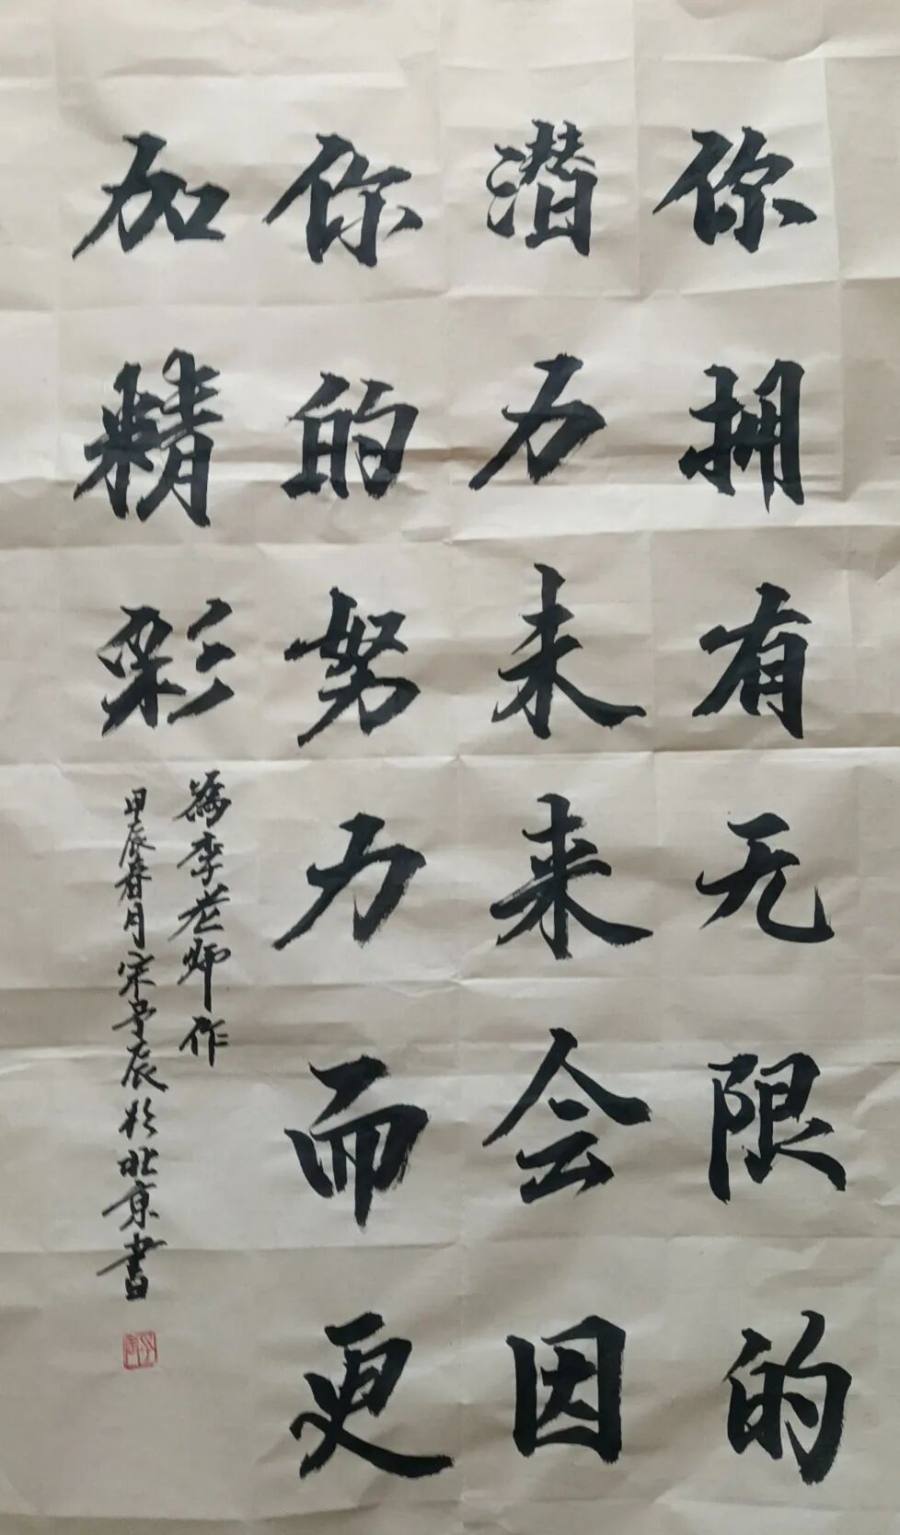 你拥有无限的
潜力未来会因
你的努力而更
加精彩
為李老师作
甲辰春月宋予辰於北京書